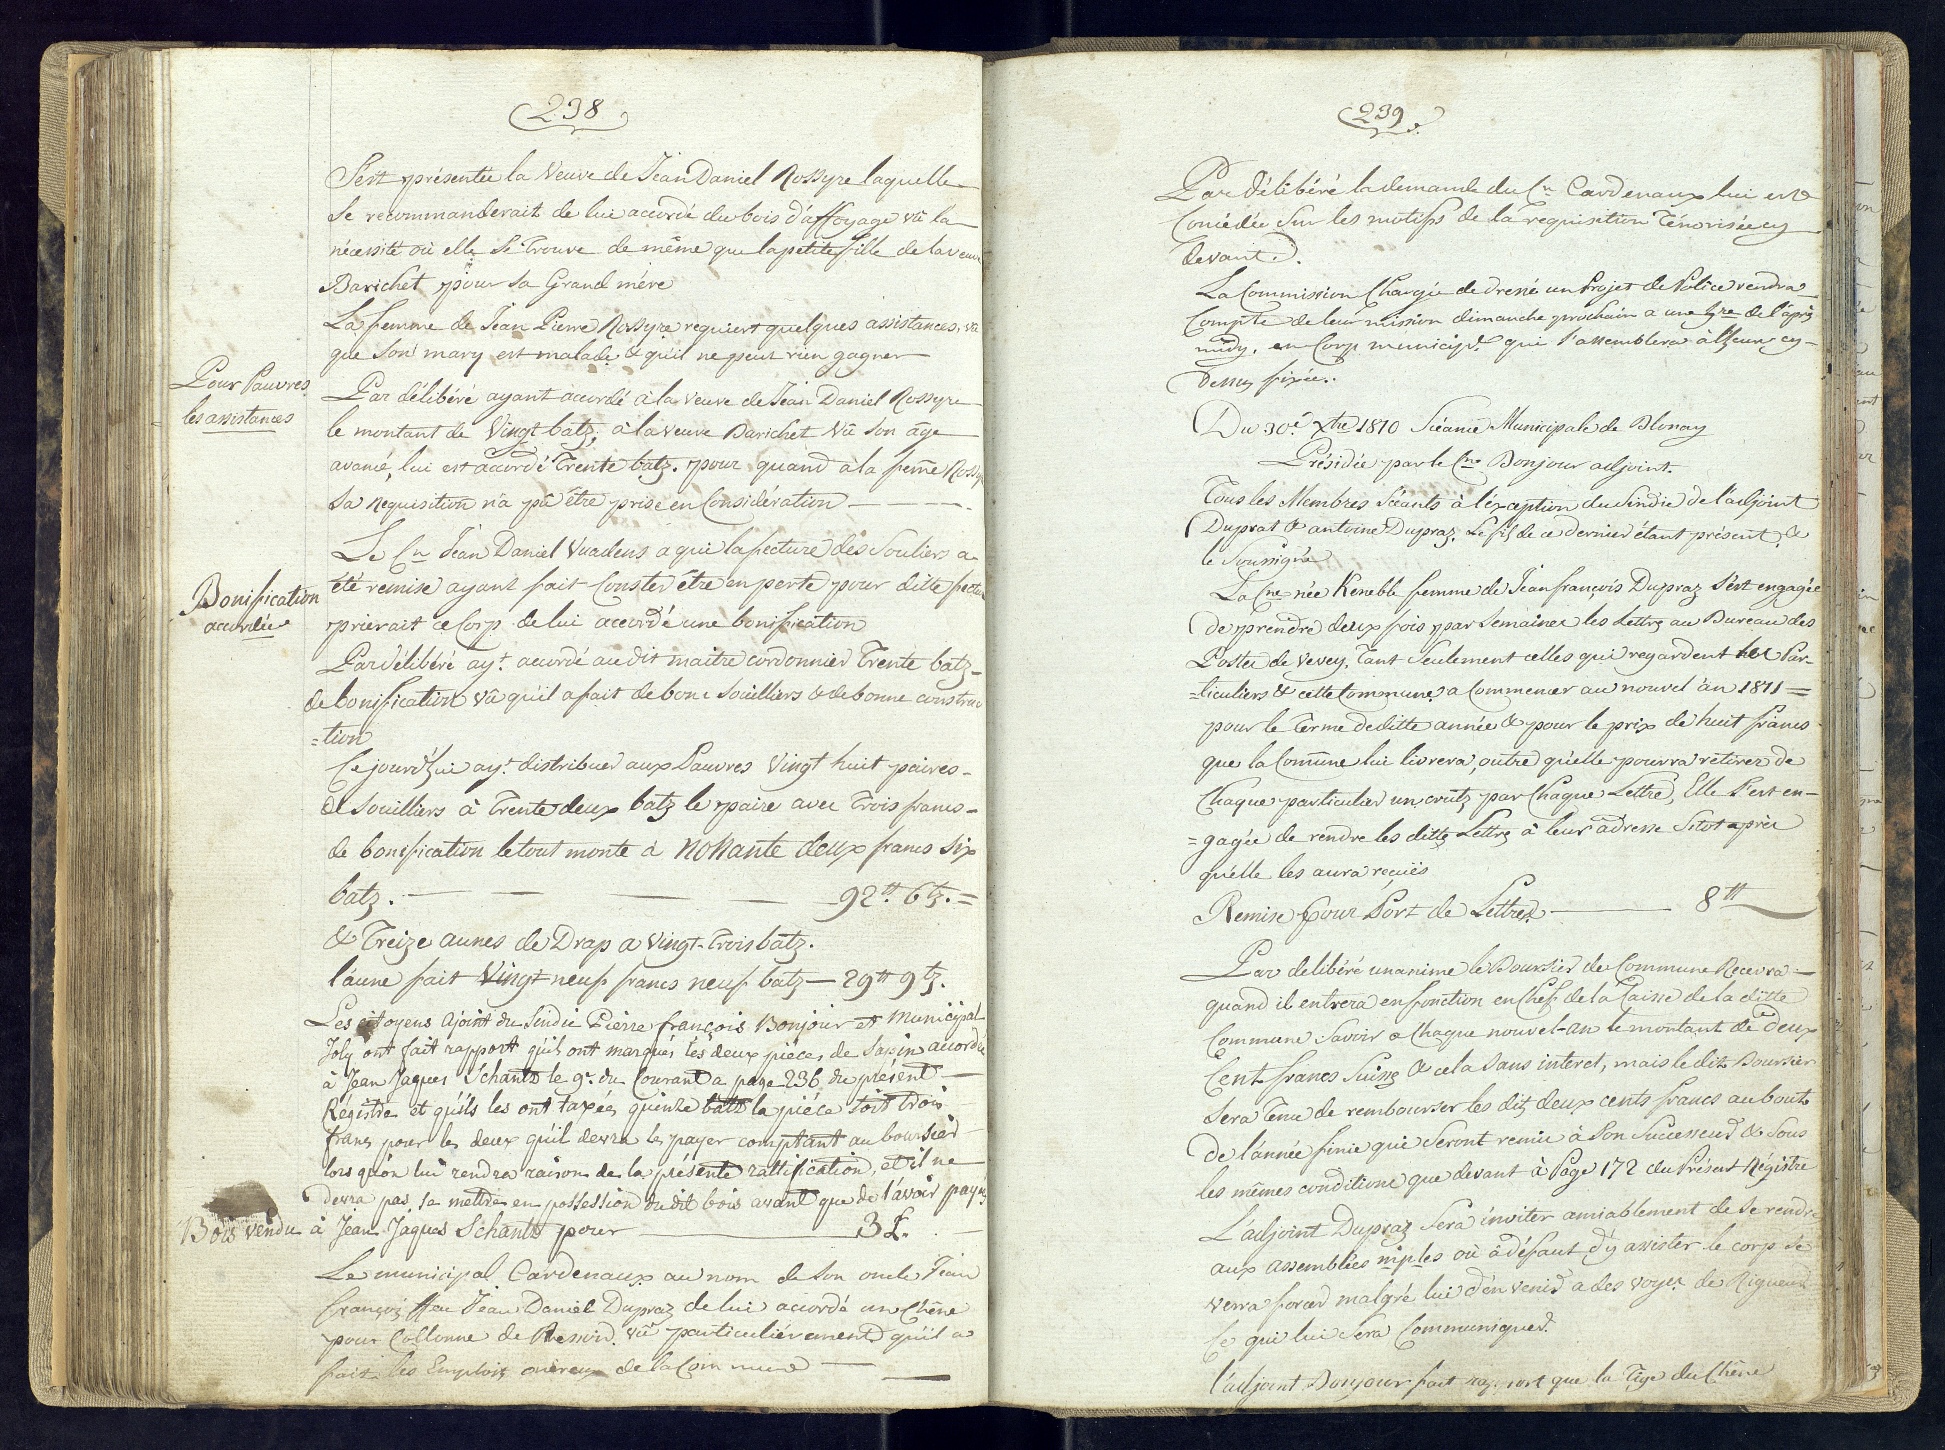 238
S'est présentée la Veuve de Jean Daniel Rossyre laquelle
Se recommanderait de lui accordé du bois d'affoyage vû la
nécessité où elle Se Trouve de même que la petite fille de la veuve
Barichet pour Sa Grand mére
La femme de Jean Pierre Rossyre requiert quelques assistances, vû
que Son mary est malade & qu'il ne peut rien gagner
Pour Pauvres
les assistances
Par délibéré ayant accordé à la Veuve de Jean Daniel Rossyre
le montant de Vingt batz, à la veuve Barichet Vû Son âge
avancé, lui est accordé Trente batz. pour quand à la feme Rossyre
Sa Requisition n'a pû être prise en Considération
Le Cn Jean Daniel Vuadens a qui la fecture des Souliers a
Bonification
accordée
été remise ayant fait Conster être en perte pour ditte fecture
prierait ce Corp de lui accordé une bonification
Par délibéré ayt. accordé au dit maitre cordonnier Trente batz
de bonification vû qu'il a fait de bons Souilliers & de bonne construc
=tion
Ce jourd'hui ayt. distribuer aux Pauvres Vingt huit paires
de Souilliers à Trente deux batz le paire avec Trois francs
de bonification le tout monte à Nonante deux francs Six
batz. 92 tt 6 tz. =
& Treize aunes de Drap a Vingt-Trois batz.
l'aune fait Vingt neuf francs neuf batz — 29 tt 9 tz.
Les citoyens ajoint du Sindic Pierre françois Bonjour et Municipal
Joly ont fait rapport qu'ils ont marqués les deux piéces de Sapin accordé
à Jean Jaques Schantz le 9e. du Courant a page 236 du présent
Régistre et qu'ils les ont taxées quinze batz la piéce Soit trois
francs pour les deux qu'il devra les payer comptant au boursier
lors qu'on lui rendra raison de la présente rattification, et il ne
devra pas se mettre en possession du dit bois avant que de l'avoir payé
Bois vendu à Jean Jaques Schantz pour 3 £.
Le municipal Cardenaux au nom de Son oncle Jean
françois feu Jean Daniel Dupraz de lui accordé un Chêne
pour Collonne de Pressoir vû particuliérement qu'il a
fait les Emplois onéreux de la Commune
239
Par délibéré la demande du Cn Cardenaux lui est
Concédée Sur les motifs de la requisition Ténorisée cy
devant.
La Commission Chargée de dressé un Projet de Police rendra
Compte de leur mission dimanche prochain a une hre de l'après
midy, en Corp municipl. qui S'assemblera à l'heure cy-
dessus fixée.
Du 30e. Xbre 1810 Séance Municipale de Blonay
Présidée par le Cn Bonjour adjoint.
Tous les Membres Séants à l'éxception du Sindic de l'adjoint
Duprat & antoine Dupraz. Le fils de ce dernier étant présent, &
le Soussigné
La Cne née Keneble femme de Jean françois Dupraz S'est engagée
de prendre deux fois par Semaines les Lettres au Bureau des
Postes de Vevey, Tant Seulement celles qui regardent les Par-
=ticuliers & cette Commune, a Commencer au nouvel'an 1811 =
pour le Terme de ditte année & pour le prix de huit francs
que la Comune lui livrera, outre qu'elle pourra retirer de
Chaque particulier un crutz par Chaque Lettre, Elle S'est en-
=gagée de rendre les dittes Lettres à leur adresse Sitot après
qu'elle les aura reçuës
Remise pour Port de Lettres 8 tt
Par deliberé unanime le Boursier de Commune Recevra
quand il entrera en fonction en Chef de la Caisse de la ditte
Commune Savoir a Chaque nouvel-an le montant de deux
Cent francs Suisse & cela Sans interet, mais le dit Boursier
Sera Tenu de rembourser les dits deux cents francs au bout
de l'année finie qui Seront remis à Son Successeur & Sous
les mêmes conditions que devant à Page 172 du Présent Régistre
L'adjoint Dupraz Sera inviter amiablement de Se rendre
aux assemblées mples où à défaut d'y assister le corp Se
verra forcer malgré lui d'en venir a des voyes de Rigueur
Ce qui lui Sera Communiquer.
l'adjoint Bonjour fait raport que la Tige du Chêne